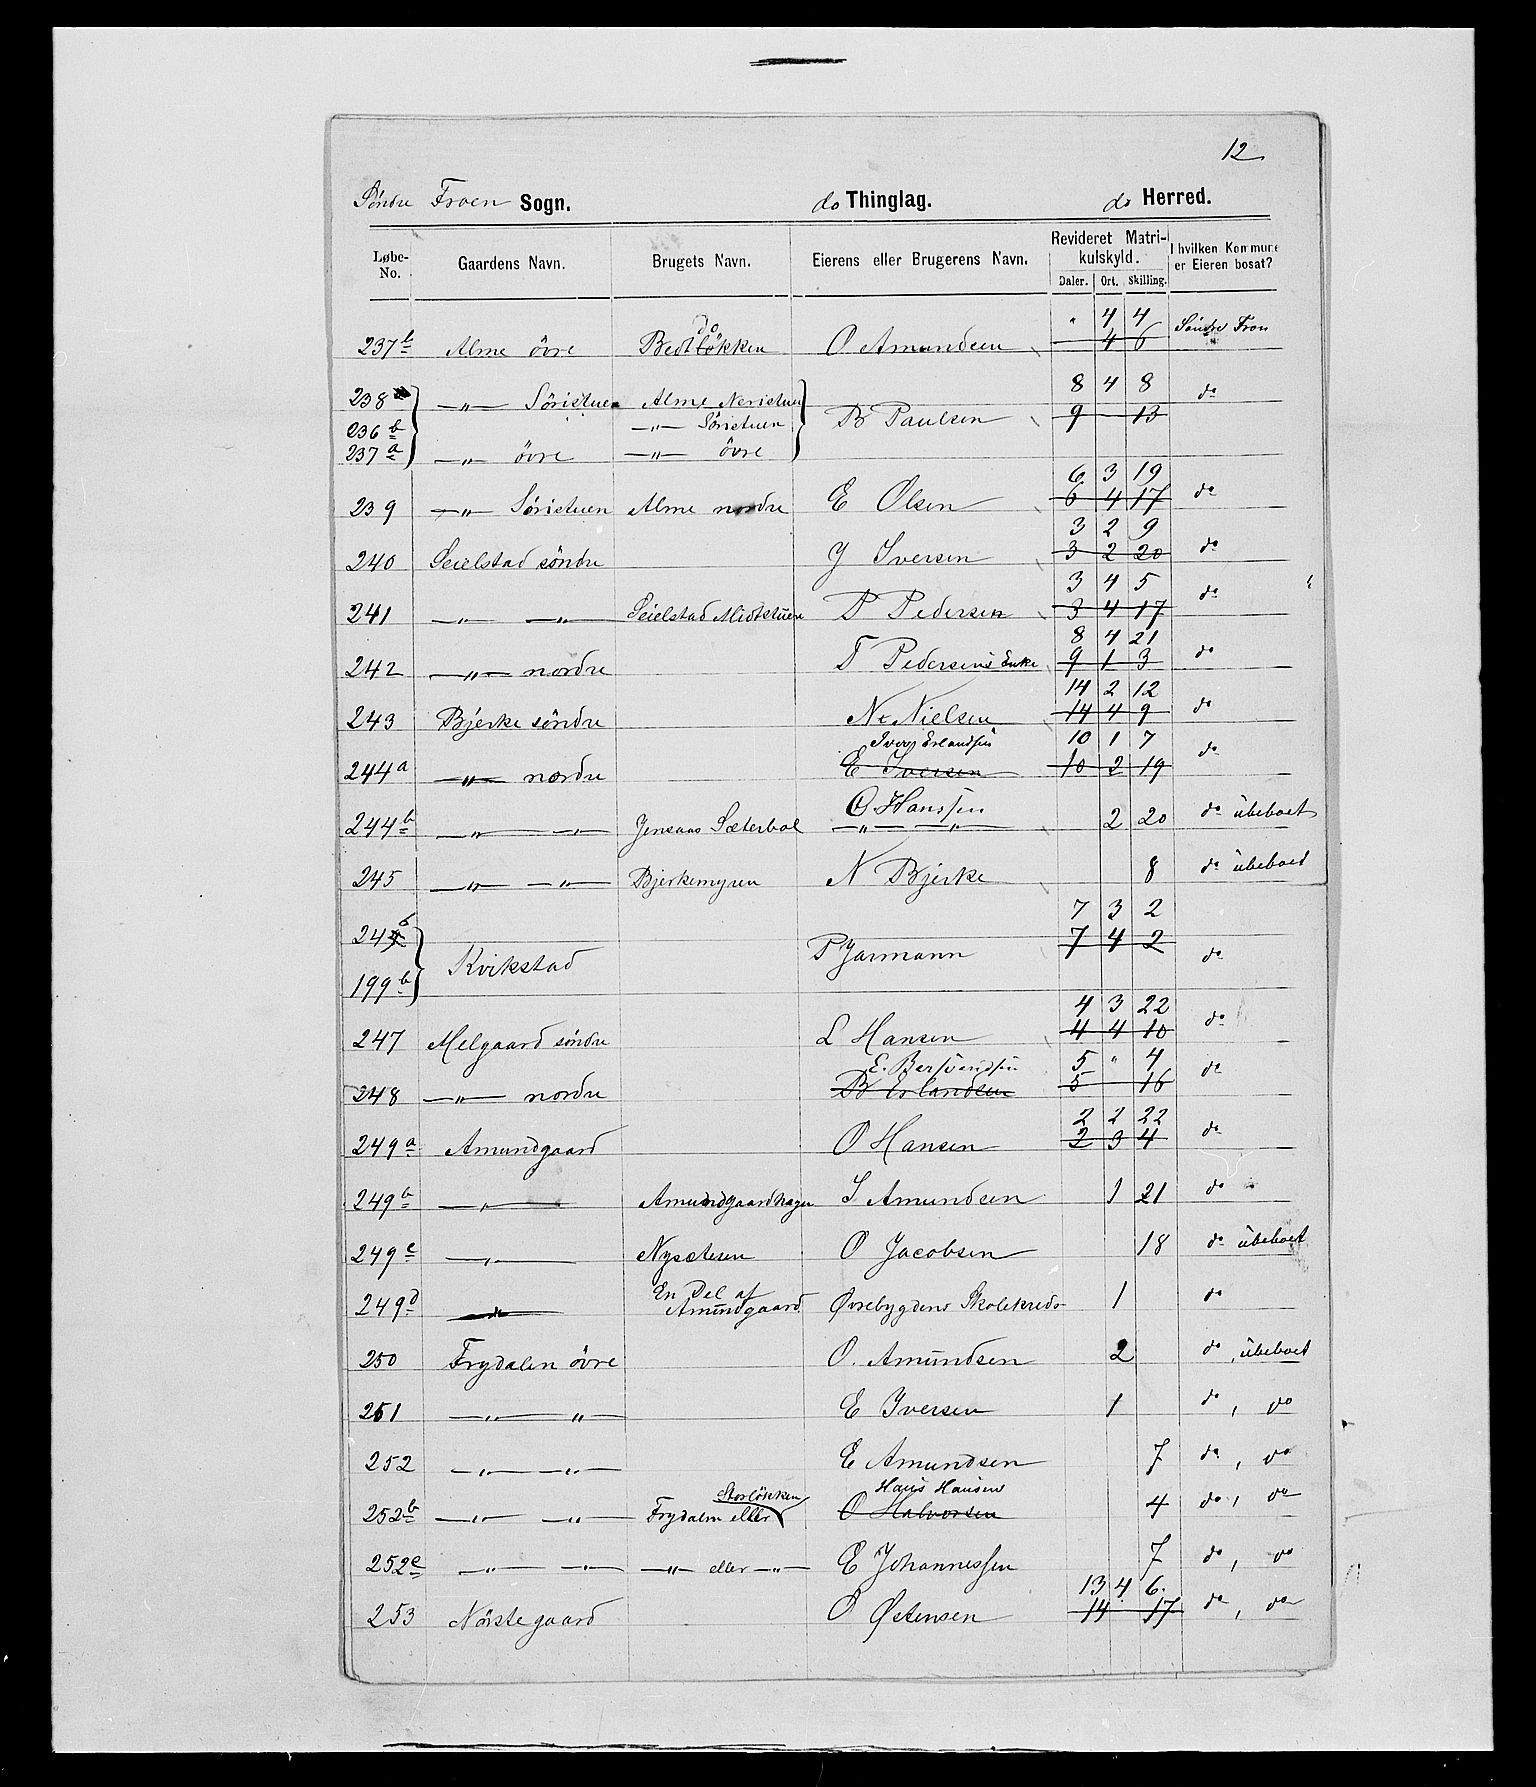 12
Söndre Froen Sogn. do Thinglag. do Herred.
Løbe-No. Gaardens Navn. Brugets Navn. Eierens eller Brugerens Navn. Revideret Matrikulskyld. I hvilken Kommune er Eieren bosat?
Daler. Ort. Skilling.
do " 4 4
237b Alme övre Bedtlökken O Amundsen 4 6 Söndre Fron
8 4 8
238 —"— Söristuen Alme Neristuen B Paulsen 9 13 do
236b —"— Söristuen
237a —"— övre —"— övre
6 3 19
239 —"— Söristuen Alme nordre E Olsen 6 4 17 do
3 2 9
240 Seielstad söndre J Iversen 3 2 20 do
3 4 5
241 —"— —"— Seielstad Midtstuen P Pedersen 3 4 17 do
8 4 21
242 —"— nordre T Pedersens Enke 9 1 3 do
14 2 12
243 Bjerke söndre N. Nielsen 14 4 9 do
Iver Erlandsen 10 1 7
244a —"— nordre E Iversen 10 2 19 do
O. Hanssen
244b —"— —"— Jensaas Sæterbol —"— —"— 2 20 do ubeboet
245 —"— —"— Bjerkemyren N Bjerke 8 do ubeboed
7 3 2
245b Kvikstad P Jarmann 7 4 2 do
199b
4 3 22
247 Melgaard söndre L Hansen 4 4 10 do
E. Bersvendsen 5 " 4
248 —"— nordre B Erlandsen 5 16 do
2 2 22
249a Amundgaard O Hansen 2 3 4 do
249b —"— Amundgaardhagen S Amundsen 1 21 do
249c —"— Nysæteren O Jacobsen 18 do ubeboet
En Del af
249d —"— Amundgaard Øvrebygdens Skolekreds 1 do
250 Frydalen övre O. Amundsen 2 do, ubeboet
251 —"— " E Iversen 1 do, do
252 —"— —"— E Amundsen 7 do, do
Storlökken Hans Hansen
252b —"— —"— Frydalen eller O Halvorsen 4 do, do
252c —"— —"— —"— eller —"— E Johannessen 7 do, do
13 4 6
253 Nörstegaard O Østensen 14 17 do, do